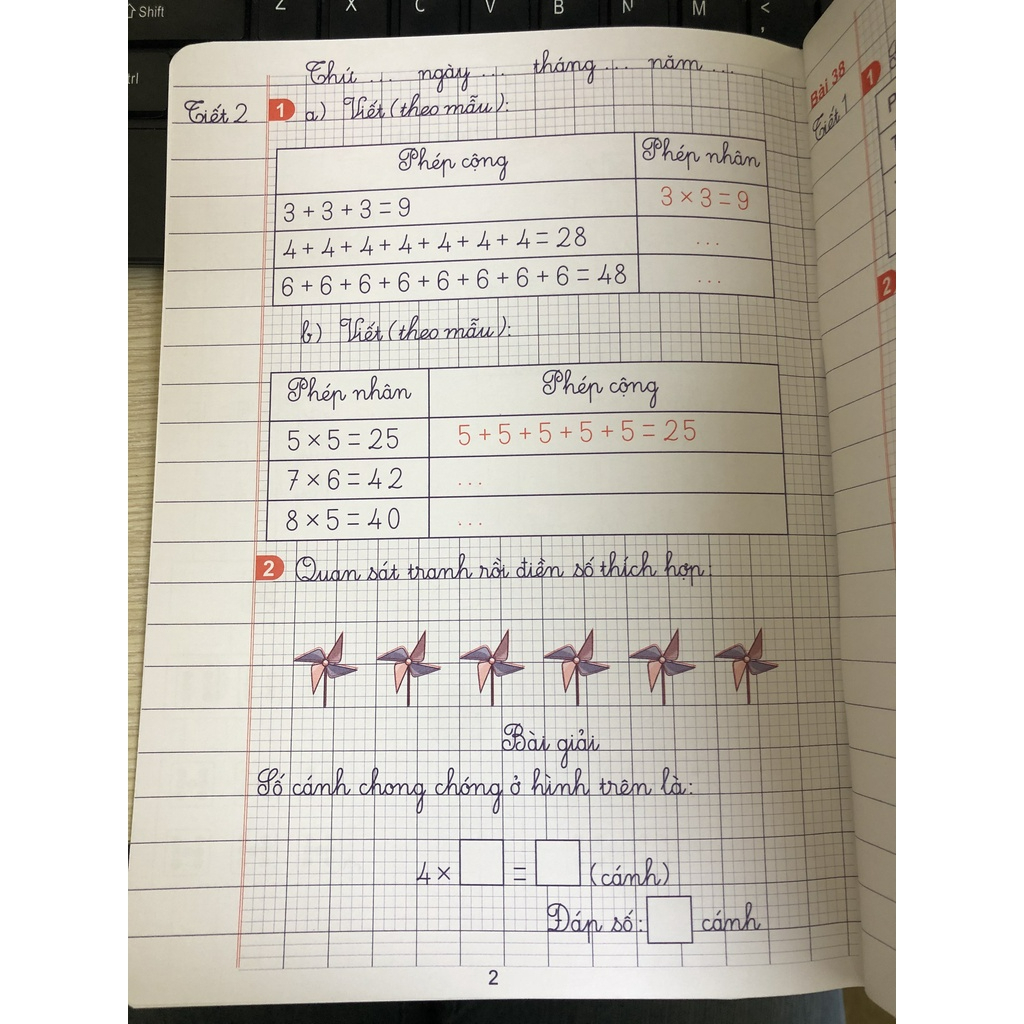 Shift
Z X C V B N M <
,
trl
Thứ ... ngày ... tháng ... năm ...
Tiết 2 1 a) Viết (theo mẫu):
Phép cộng Phép nhân
3 + 3 + 3 = 9 3 × 3 = 9
4 + 4 + 4 + 4 + 4 + 4 + 4 = 28 ...
6 + 6 + 6 + 6 + 6 + 6 + 6 + 6 = 48 ...
b) Viết (theo mẫu):
Phép nhân Phép cộng
5 × 5 = 25 5 + 5 + 5 + 5 + 5 = 25
7 × 6 = 42 ...
8 × 5 = 40 ...
2 Quan sát tranh rồi điền số thích hợp:
Bài giải
Số cánh chong chóng ở hình trên là:
4 × = (cánh)
Đáp số: cánh
2
Bài 38 1
Tiết 1
2